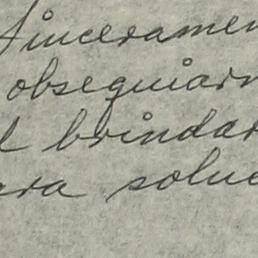 Sinceramen
obsequiarn
l brindar
ara soluc